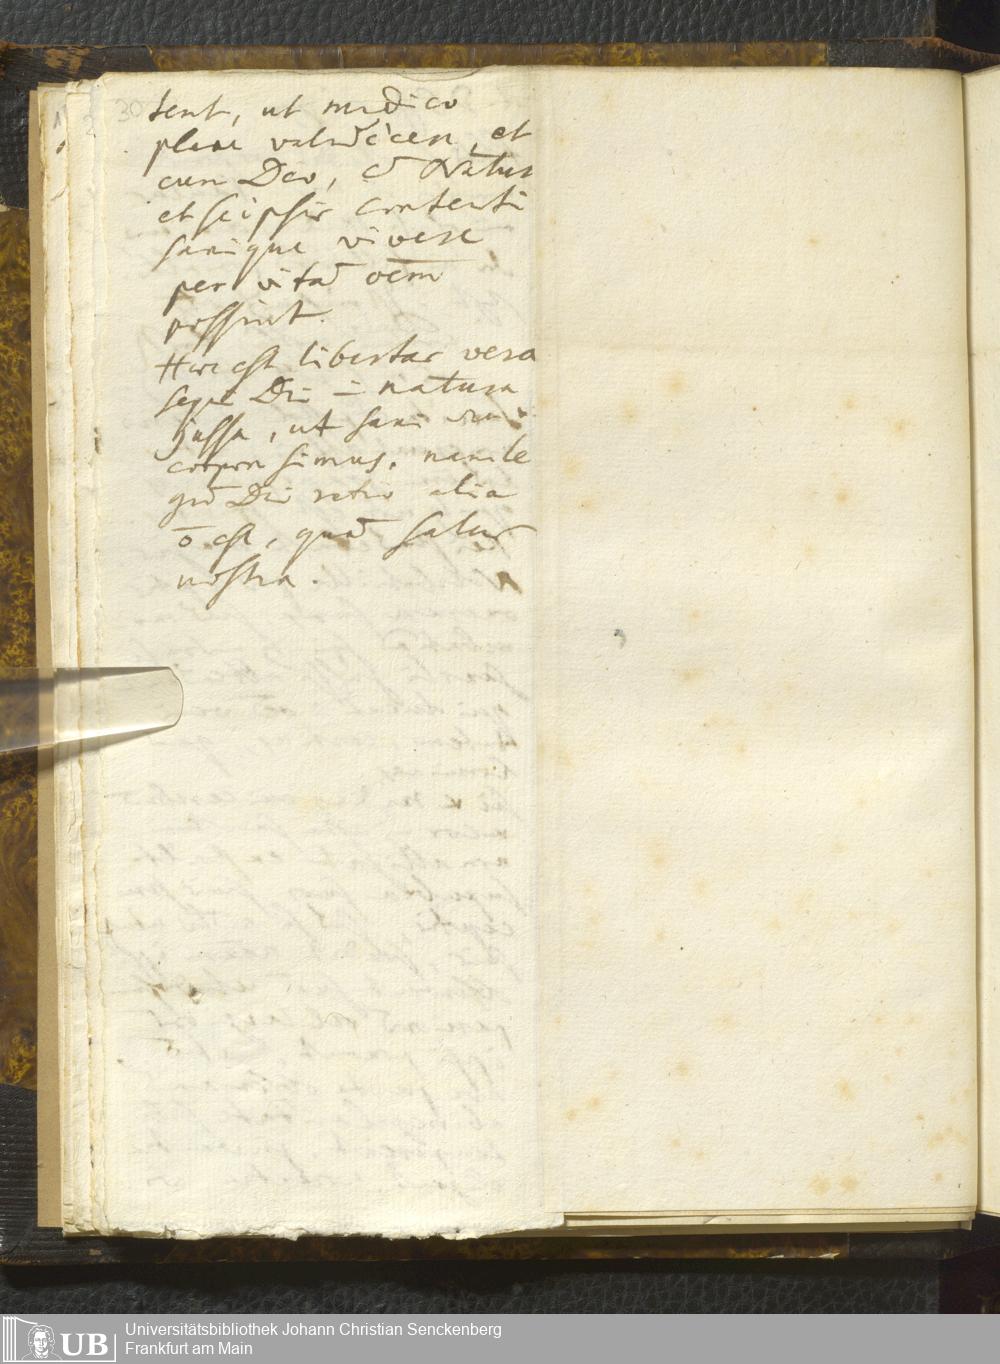 30
tent, ut medico
plane valedicere, et
cum Deo, c̄ Natura
et seipsis contenti
sanique vivere
per vitā oēm
possint.
Haec est libertas vera
Dei natura
jussa, ut sani
corpore simus. nam le
gū Dei ratio alia
ō est, quā salus
nostra.
UB
Universitätsbibliothek Johann Christian Senckenberg
Frankfurt am Main